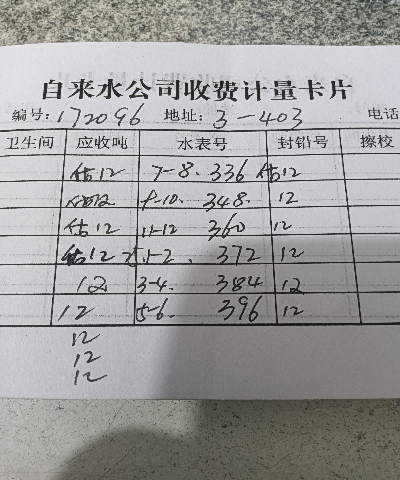 自来水公司收费计量卡片
编号:172096 地址:3-403 电话
卫生间 应收吨 水表号 封铅号 擦校
估12 7-8. 336 估12
估12 9-10. 348. 12
估12 11-12 360 12
估12 1-2. 372 12
12 3-4. 384 12
12 5-6. 396 12
12
12
12